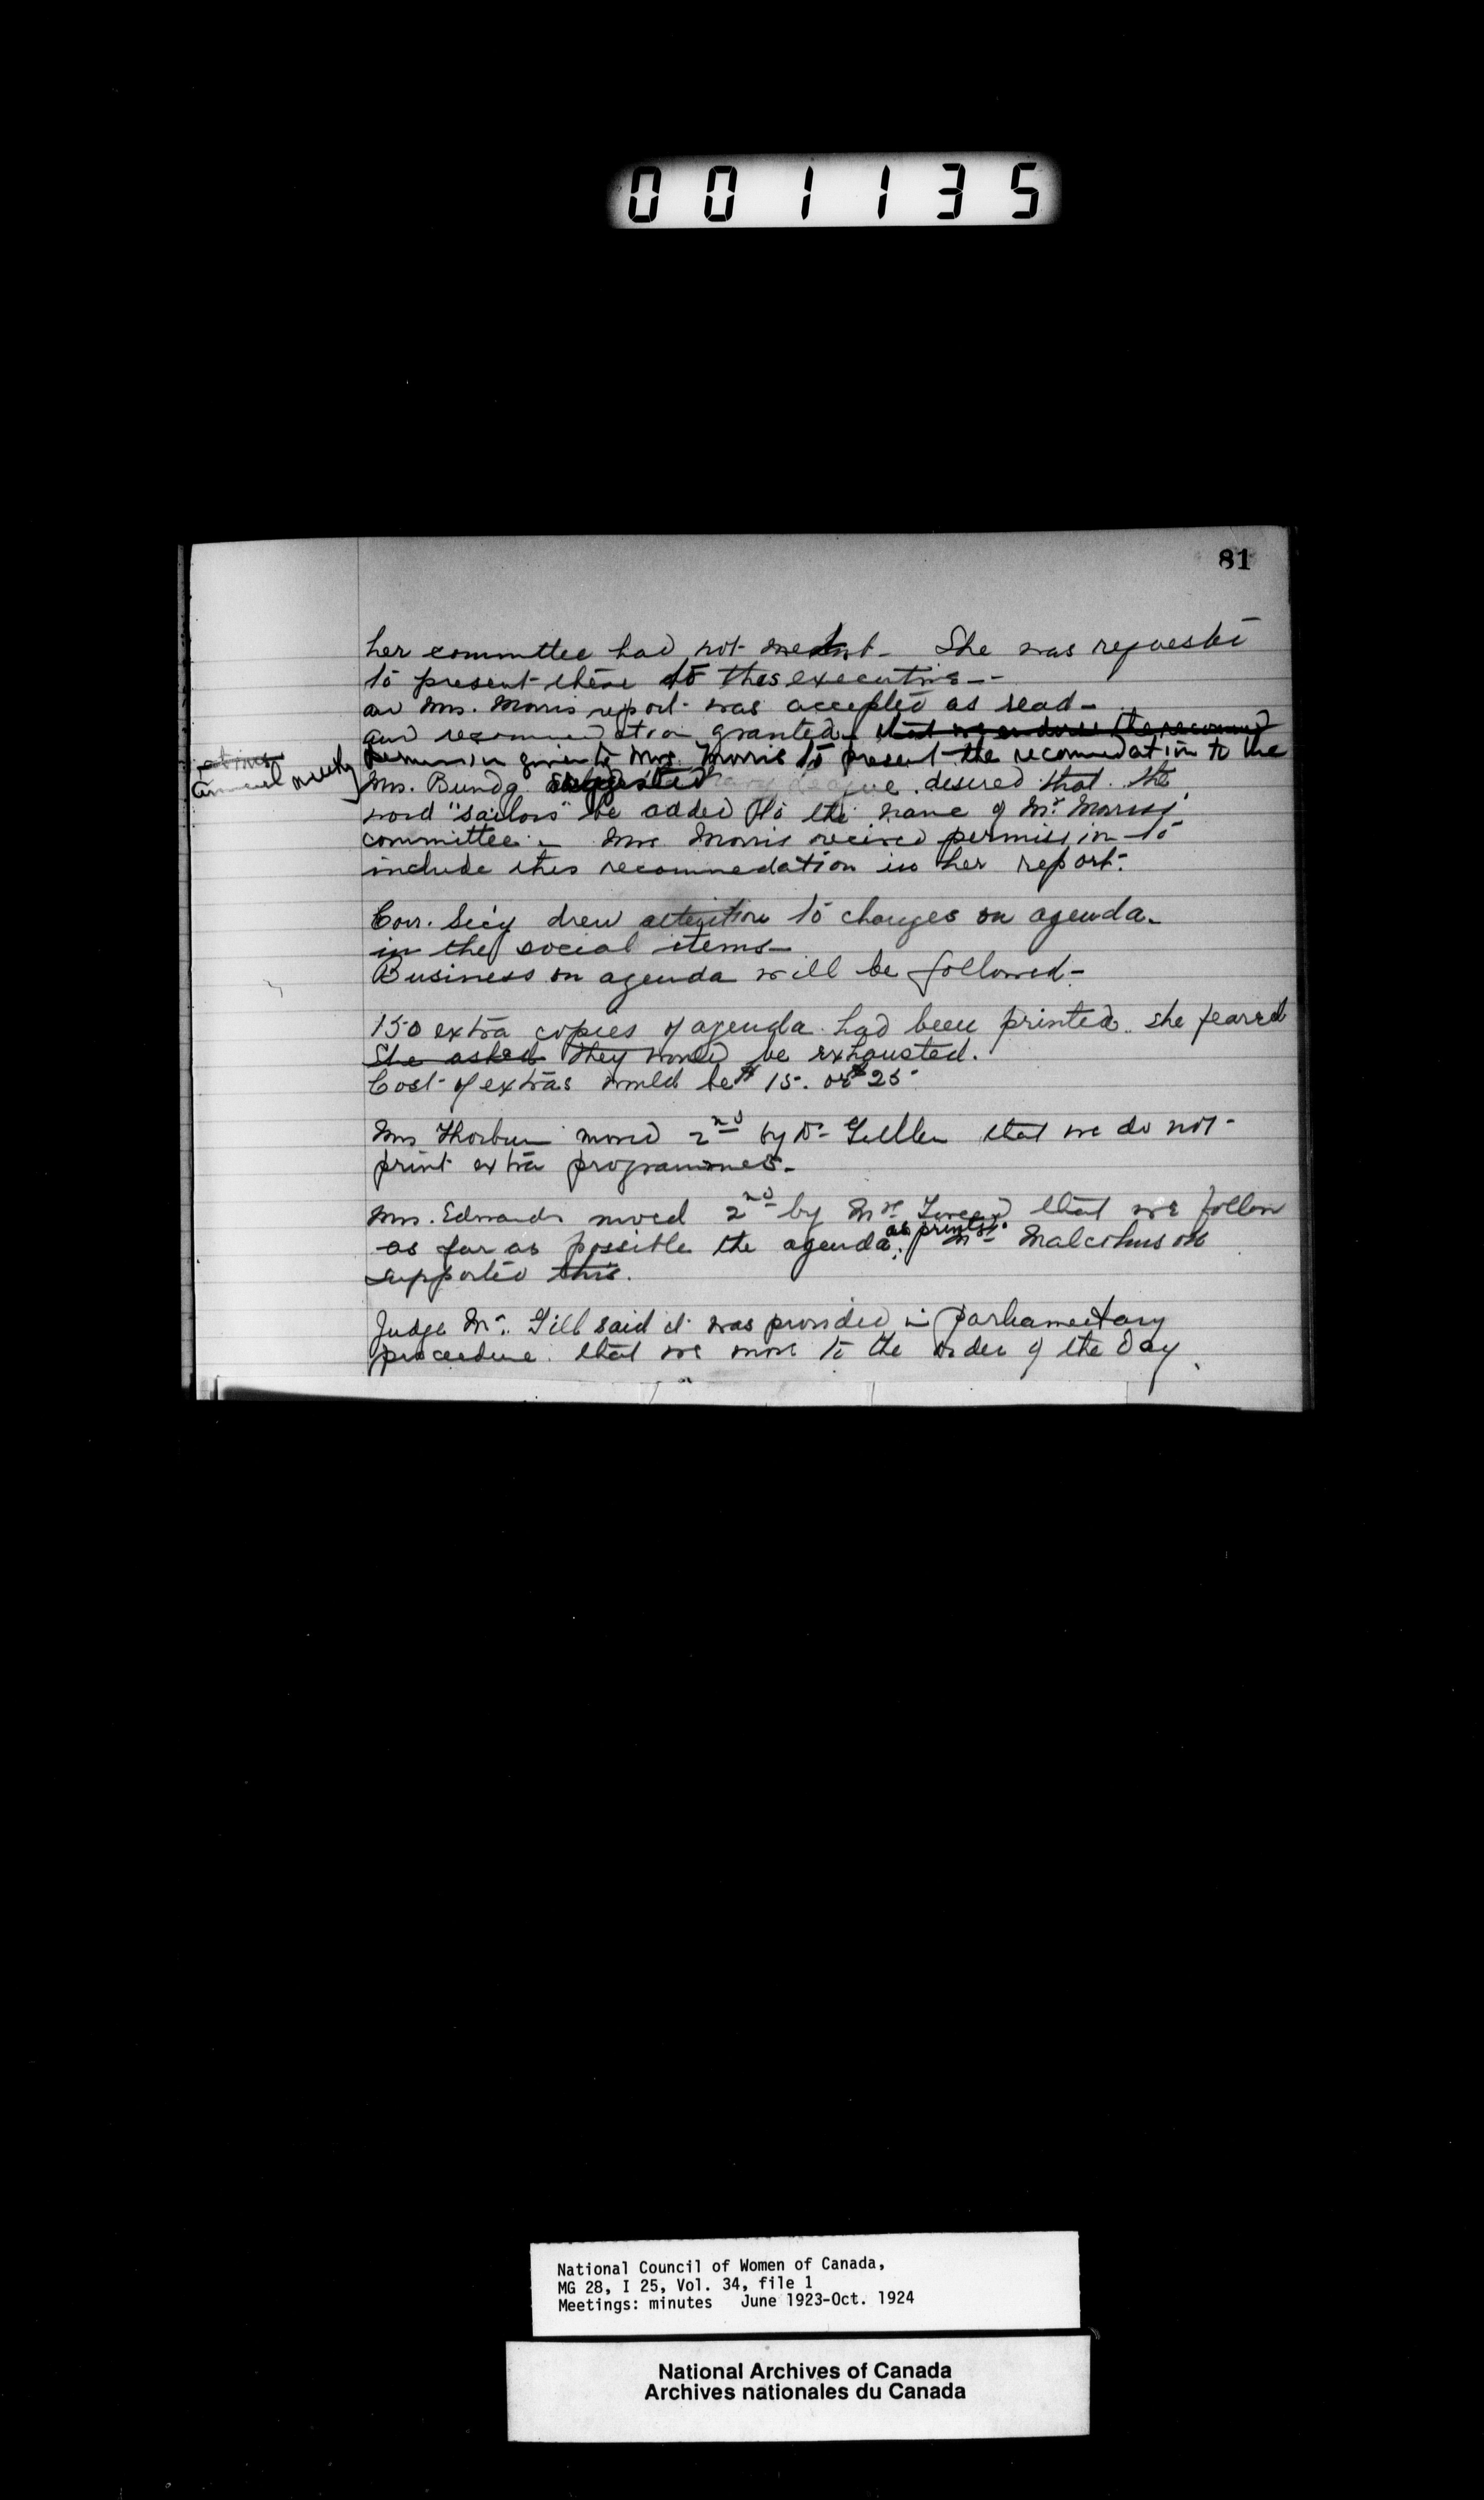 001135
81
her committee had not met. She was requested
to present these to this executive -
Mrs. Morris report was accepted as read -
and recommendation granted that we endorse the recommend
ations
permission given to Mrs. Morris to present the recomendation to the
annual meeting
Mrs. Bundy suggested desired that the
word "sailors" be added to the name of Mrs. Morris'
committee. Mrs Morris received permission to
include this recommedation in her report.
Corr. Sec'y drew attention to changes on agenda.
in the social items -
Business on agenda will be followed -
150 extra copies of agenda had been printed. She feared
She asked they would be exhausted.
Cost of extras would be $15. or $25.
Mrs Thorburn moved 2nd by Dr that we do not
print extra programmes -
Mrs. Edwards moved 2nd by Mrs. that we follow
as far as possible the agenda as printed. Mrs Malcolmson
supported this.
Judge McGill said it was provided in parliamentary
proceedure that we move to the order of the day.
National Council of Women of Canada,
MG 28, I 25, Vol. 34, file 1
Meetings: minutes June 1923-Oct. 1924
National Archives of Canada
Archives nationales du Canada